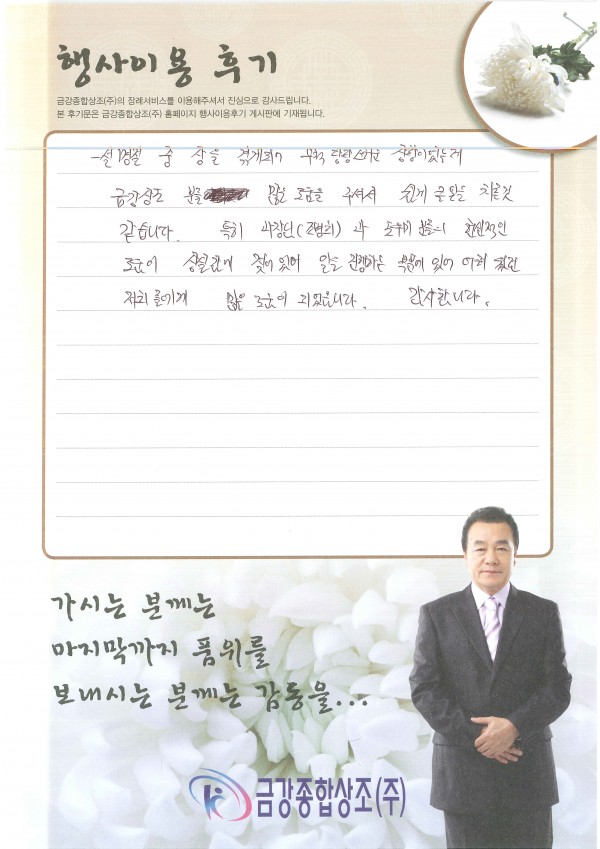 행사이용 후기
금강종합상조(주)의 장례서비스를 이용해주셔서 진심으로 감사드립니다.
본 후기문은 금강종합상조(주) 홈페이지 행사이용후기 게시판에 기재됩니다.
설 명절 중 상을 겪게되어 무척 당황스러운 상황이었는데
금강상조 분들 많은 도움을 주셔서 쉽게 큰일을 치른것
같습니다. 특히 과 도우미 분들의 헌신적인
도움이 상황에 맞이 있어 일을 진행하는 부분에 있어
저희들에게 많은 도움이 되었습니다. 감사합니다.
가시는 분께는
마지막까지 품위를
보내시는 분께는 감동을...
금강종합상조(주)